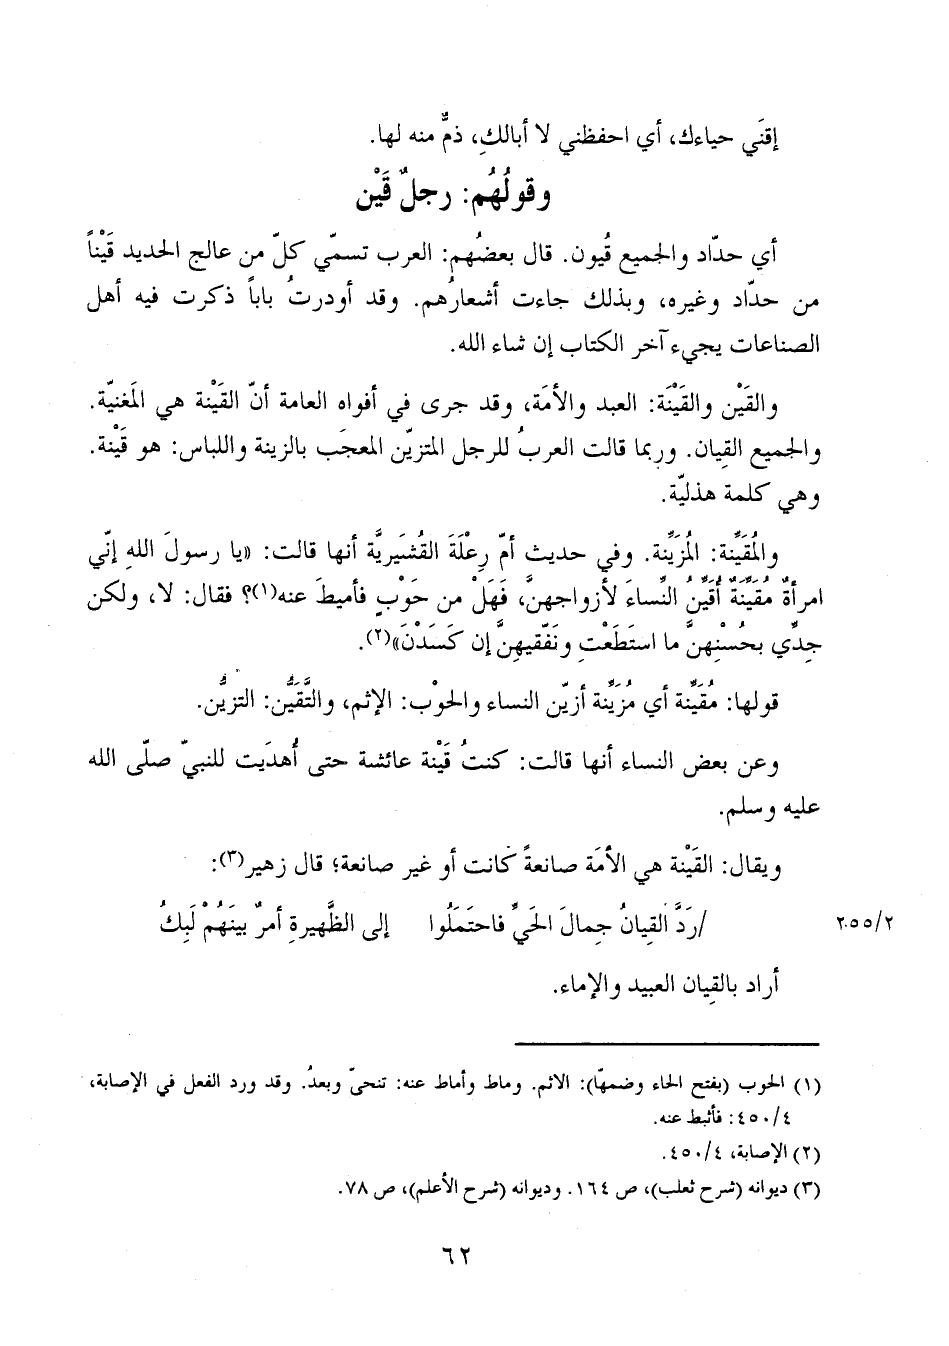 إقنَي حياءك، أي احفظني لا أبالكِ، ذمٌّ منه لها.
وقولُهُم: رجلٌ قَيْن
أي حدّاد والجميع قُيون. قال بعضُهم: العرب تسمّي كلّ من عالج الحديد قَيْناً
من حدّاد وغيره، وبذلك جاءت أشعارُهم. وقد أودرتُ باباً ذكرت فيه أهل
الصناعات يجيء آخر الكتاب إن شاء الله.
والقَيْن والقَيْنَة: العبد والأمَة، وقد جرى في أفواه العامة أنّ القَيْنة هي المَغنيّة.
والجميع القِيان. وربما قالت العربُ للرجل المتزيّن المعجَب بالزينة واللباس: هو قَيْنة.
وهي كلمة هذليّة.
والمُقيِّنة: المُزيِّنة. وفي حديث أمّ رِعْلَةَ القُشَيريَّة أنها قالت: «يا رسولَ اللهِ إنّي
امرأةٌ مُقيِّنَةٌ أُقيِّنُ النِّساءَ لأزواجهنَّ، فَهَلْ من حَوْبٍ فأميطَ عنه(١)؟ فقال: لا، ولكن
جِدِّي بحُسْنِهنَّ ما استَطَعْتِ ونَفّقيهِنَّ إن كَسَدْنَ»(٢).
قولها: مُقيِّنة أي مُزيِّنة أزيّن النساء والحوْب: الإثم، والتَّقَيُّن: التزيُّن.
وعن بعض النساء أنها قالت: كنتُ قَيْنة عائشة حتى أُهدَيت للنبيّ صلّى الله
عليه وسلم.
ويقال: القَيْنة هي الأمَة صانعةً كانت أو غير صانعة؛ قال زهير(٣):
٢/٢٠٥٥ /رَدَّ القِيانُ جِمالَ الحَيِّ فاحتَمَلُوا إلى الظَّهيرةِ أمرٌ بينَهُمْ لَبِكُ
أراد بالقِيان العبيد والإماء.
(١) الحوب (بفتح الحاء وضمها): الاثم. وماط وأماط عنه: تنحيّ وبعدُ. وقد ورد الفعل في الإصابة،
٤/٤٥٠: فأثبط عنه.
(٢) الإصابة، ٤/٤٥٠.
(٣) ديوانه (شرح ثعلب)، ص ١٦٤. وديوانه (شرح الأعلم)، ص ٧٨.
٦٢